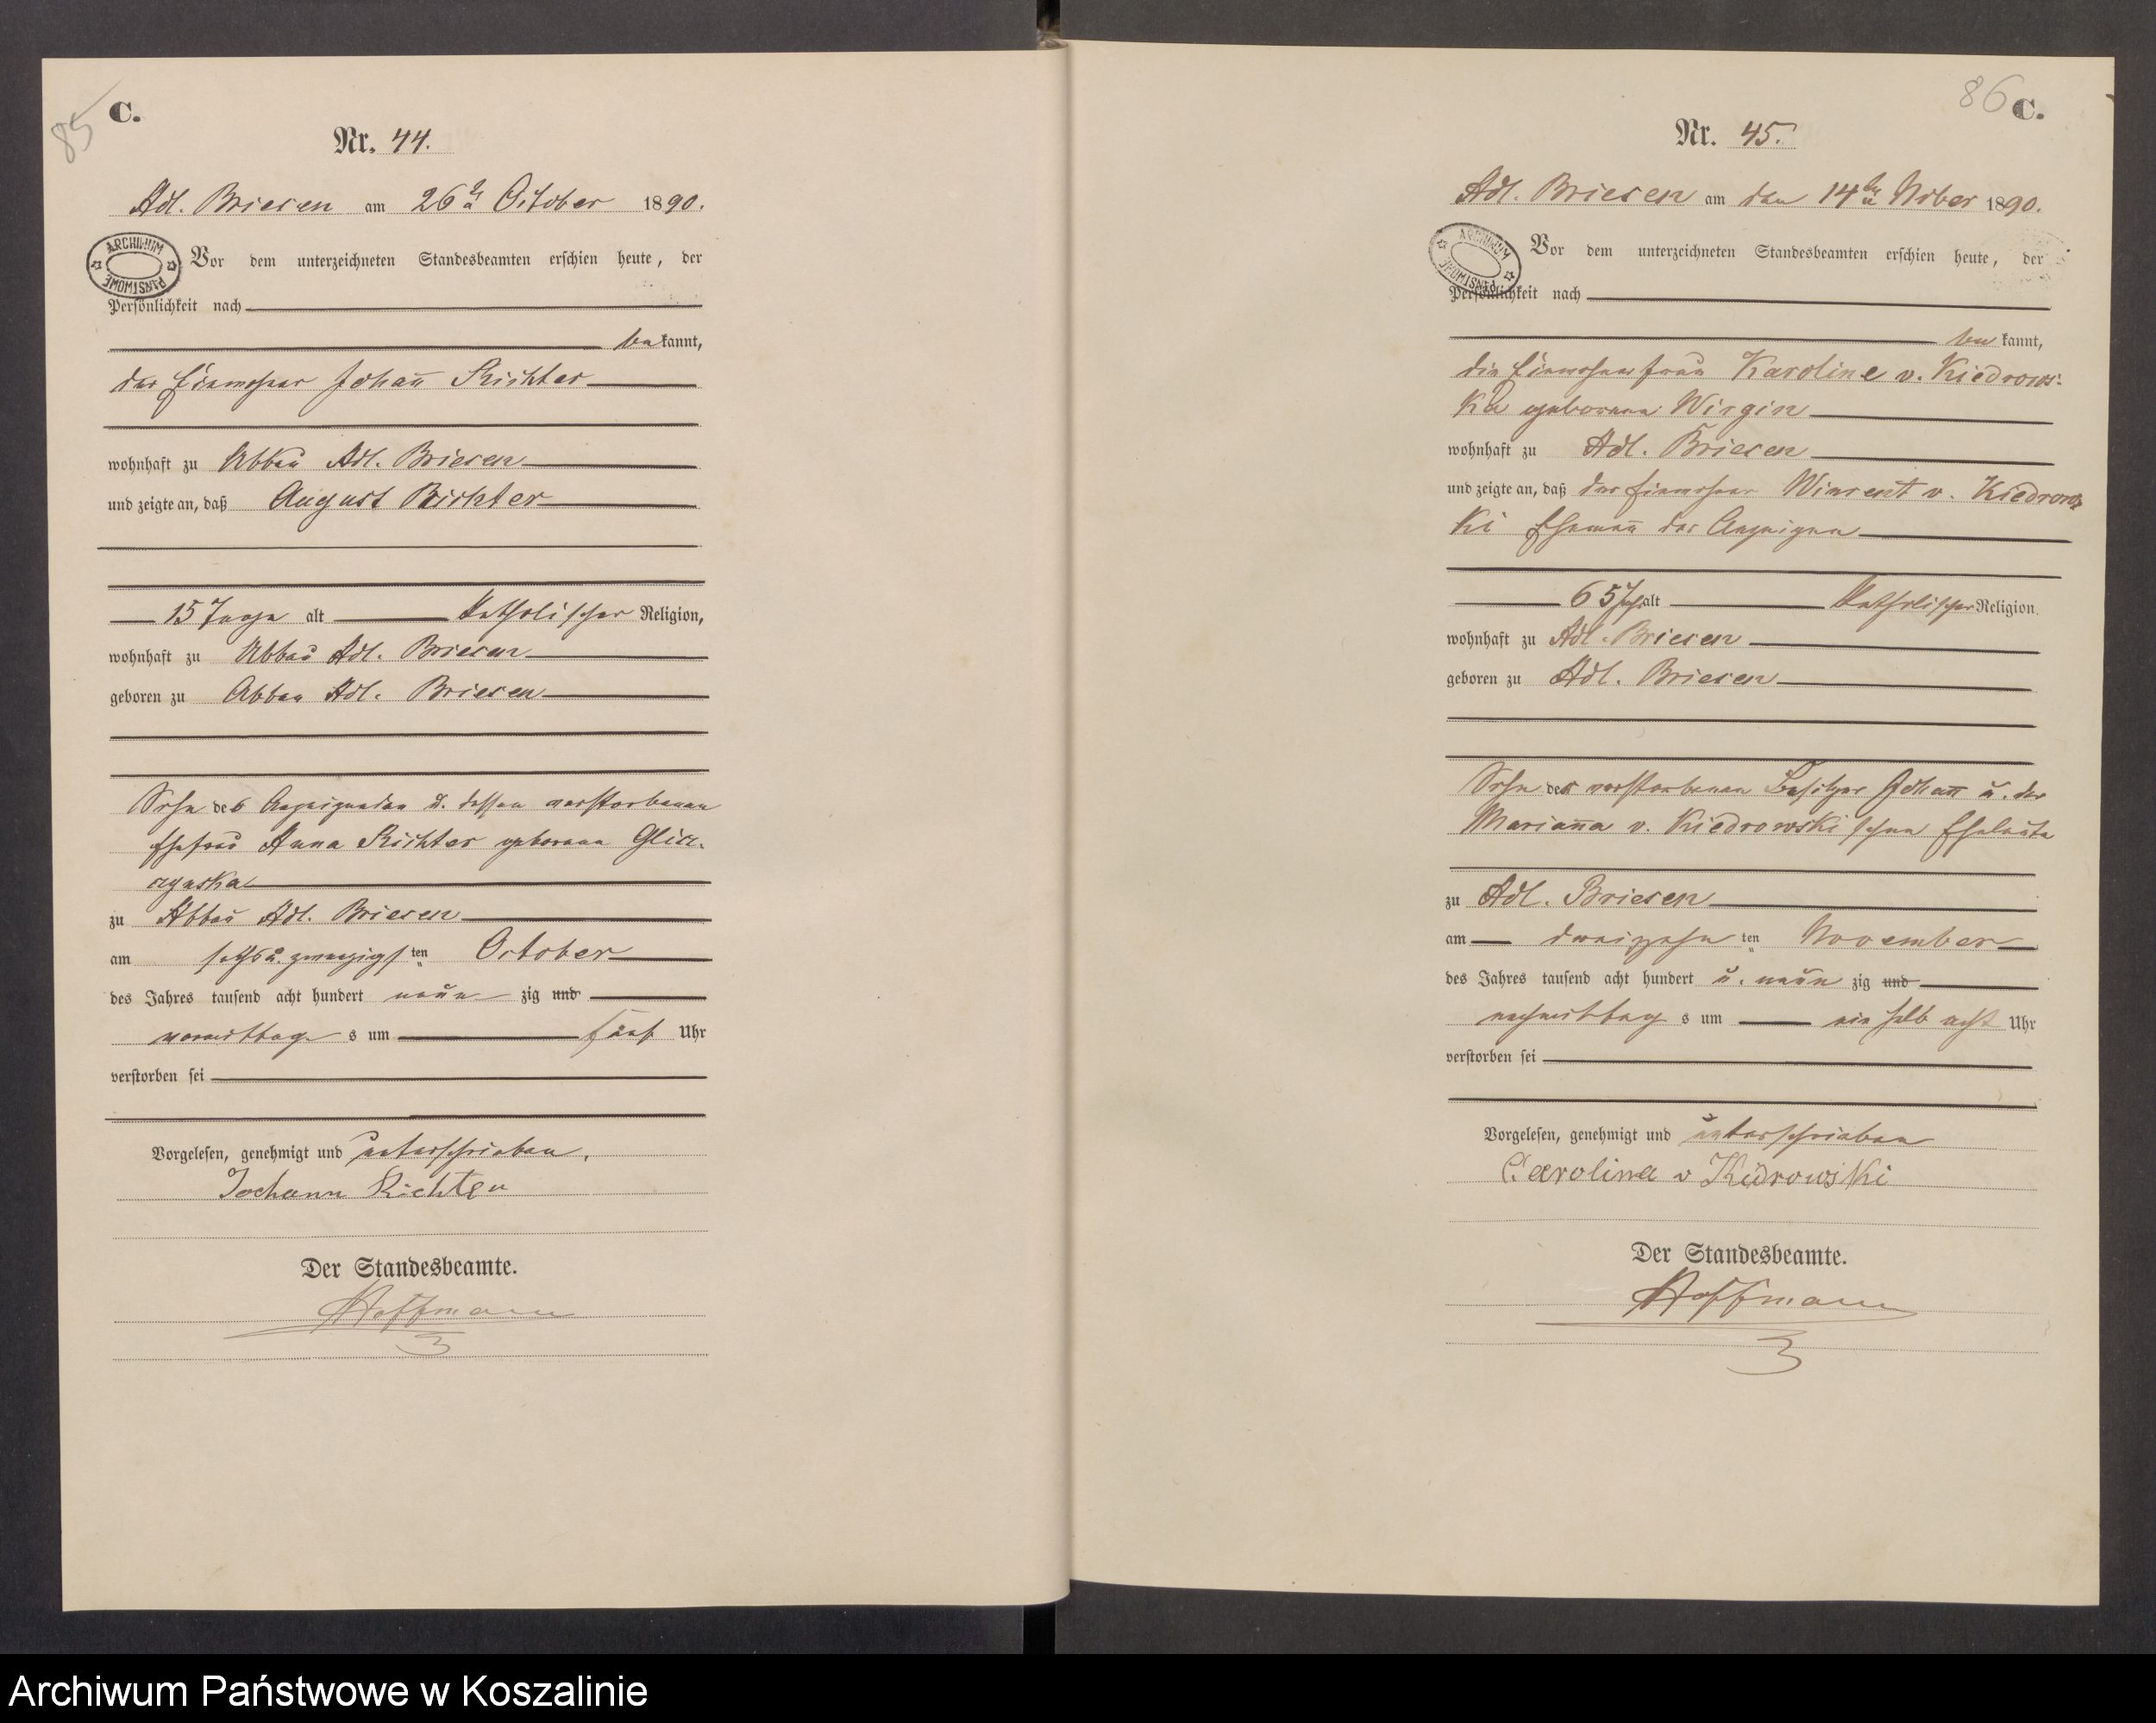 85
C.
Nr. 44.
Adl. Briesen am 26ten October 1890.
ARCHIWUM PAŃSTWOWE
Vor dem unterzeichneten Standesbeamten erschien heute, der
Persönlichkeit nach
be kannt,
der Einwohner Johañ Richter
wohnhaft zu Abbau Adl. Briesen
und zeigte an, daß August Richter
15 Tage alt katholischer Religion,
wohnhaft zu Abbau Adl. Briesen
geboren zu Abbau Adl. Briesen
Sohn des Anzeigenden u. dessen verstorbenen
Ehefrau Anna Richter geborene
zu Abbau Adl. Briesen
am sechs u. zwanzigsten October
des Jahres tausend acht hundert neun zig und
vormittags um fünf Uhr
verstorben sei
Vorgelesen, genehmigt und unterschrieben.
Johann Richter
Der Standesbeamte.
Hoffmann
86
C.
Nr. 45.
Adl. Briesen am den 14ten Nober 1890.
ARCHIWUM PAŃSTWOWE
Vor dem unterzeichneten Standesbeamten erschien heute, der
Persönlichkeit nach
be kannt,
die Einwohnerfrau Karoline v. Kiedrows-
ka geborene Wirgin
wohnhaft zu Adl. Briesen
und zeigte an, daß der Einwohner Vincent v. Kiedrows
ki Ehemañ der
65 Jahr alt katholischer Religion,
wohnhaft zu Adl. Briesen
geboren zu Adl. Briesen
Sohn der verstorbenen Besitzer Johañ u. der
Mariañna v. Kiedrowski schen Eheleute
zu Adl. Briesen
am dreizehnten November
des Jahres tausend acht hundert u. neun zig und
nachmittags um ein halb acht Uhr
verstorben sei
Vorgelesen, genehmigt und unterschrieben
Carolina v Kidrowski
Der Standesbeamte.
Hoffmann
Archiwum Państwowe w Koszalinie